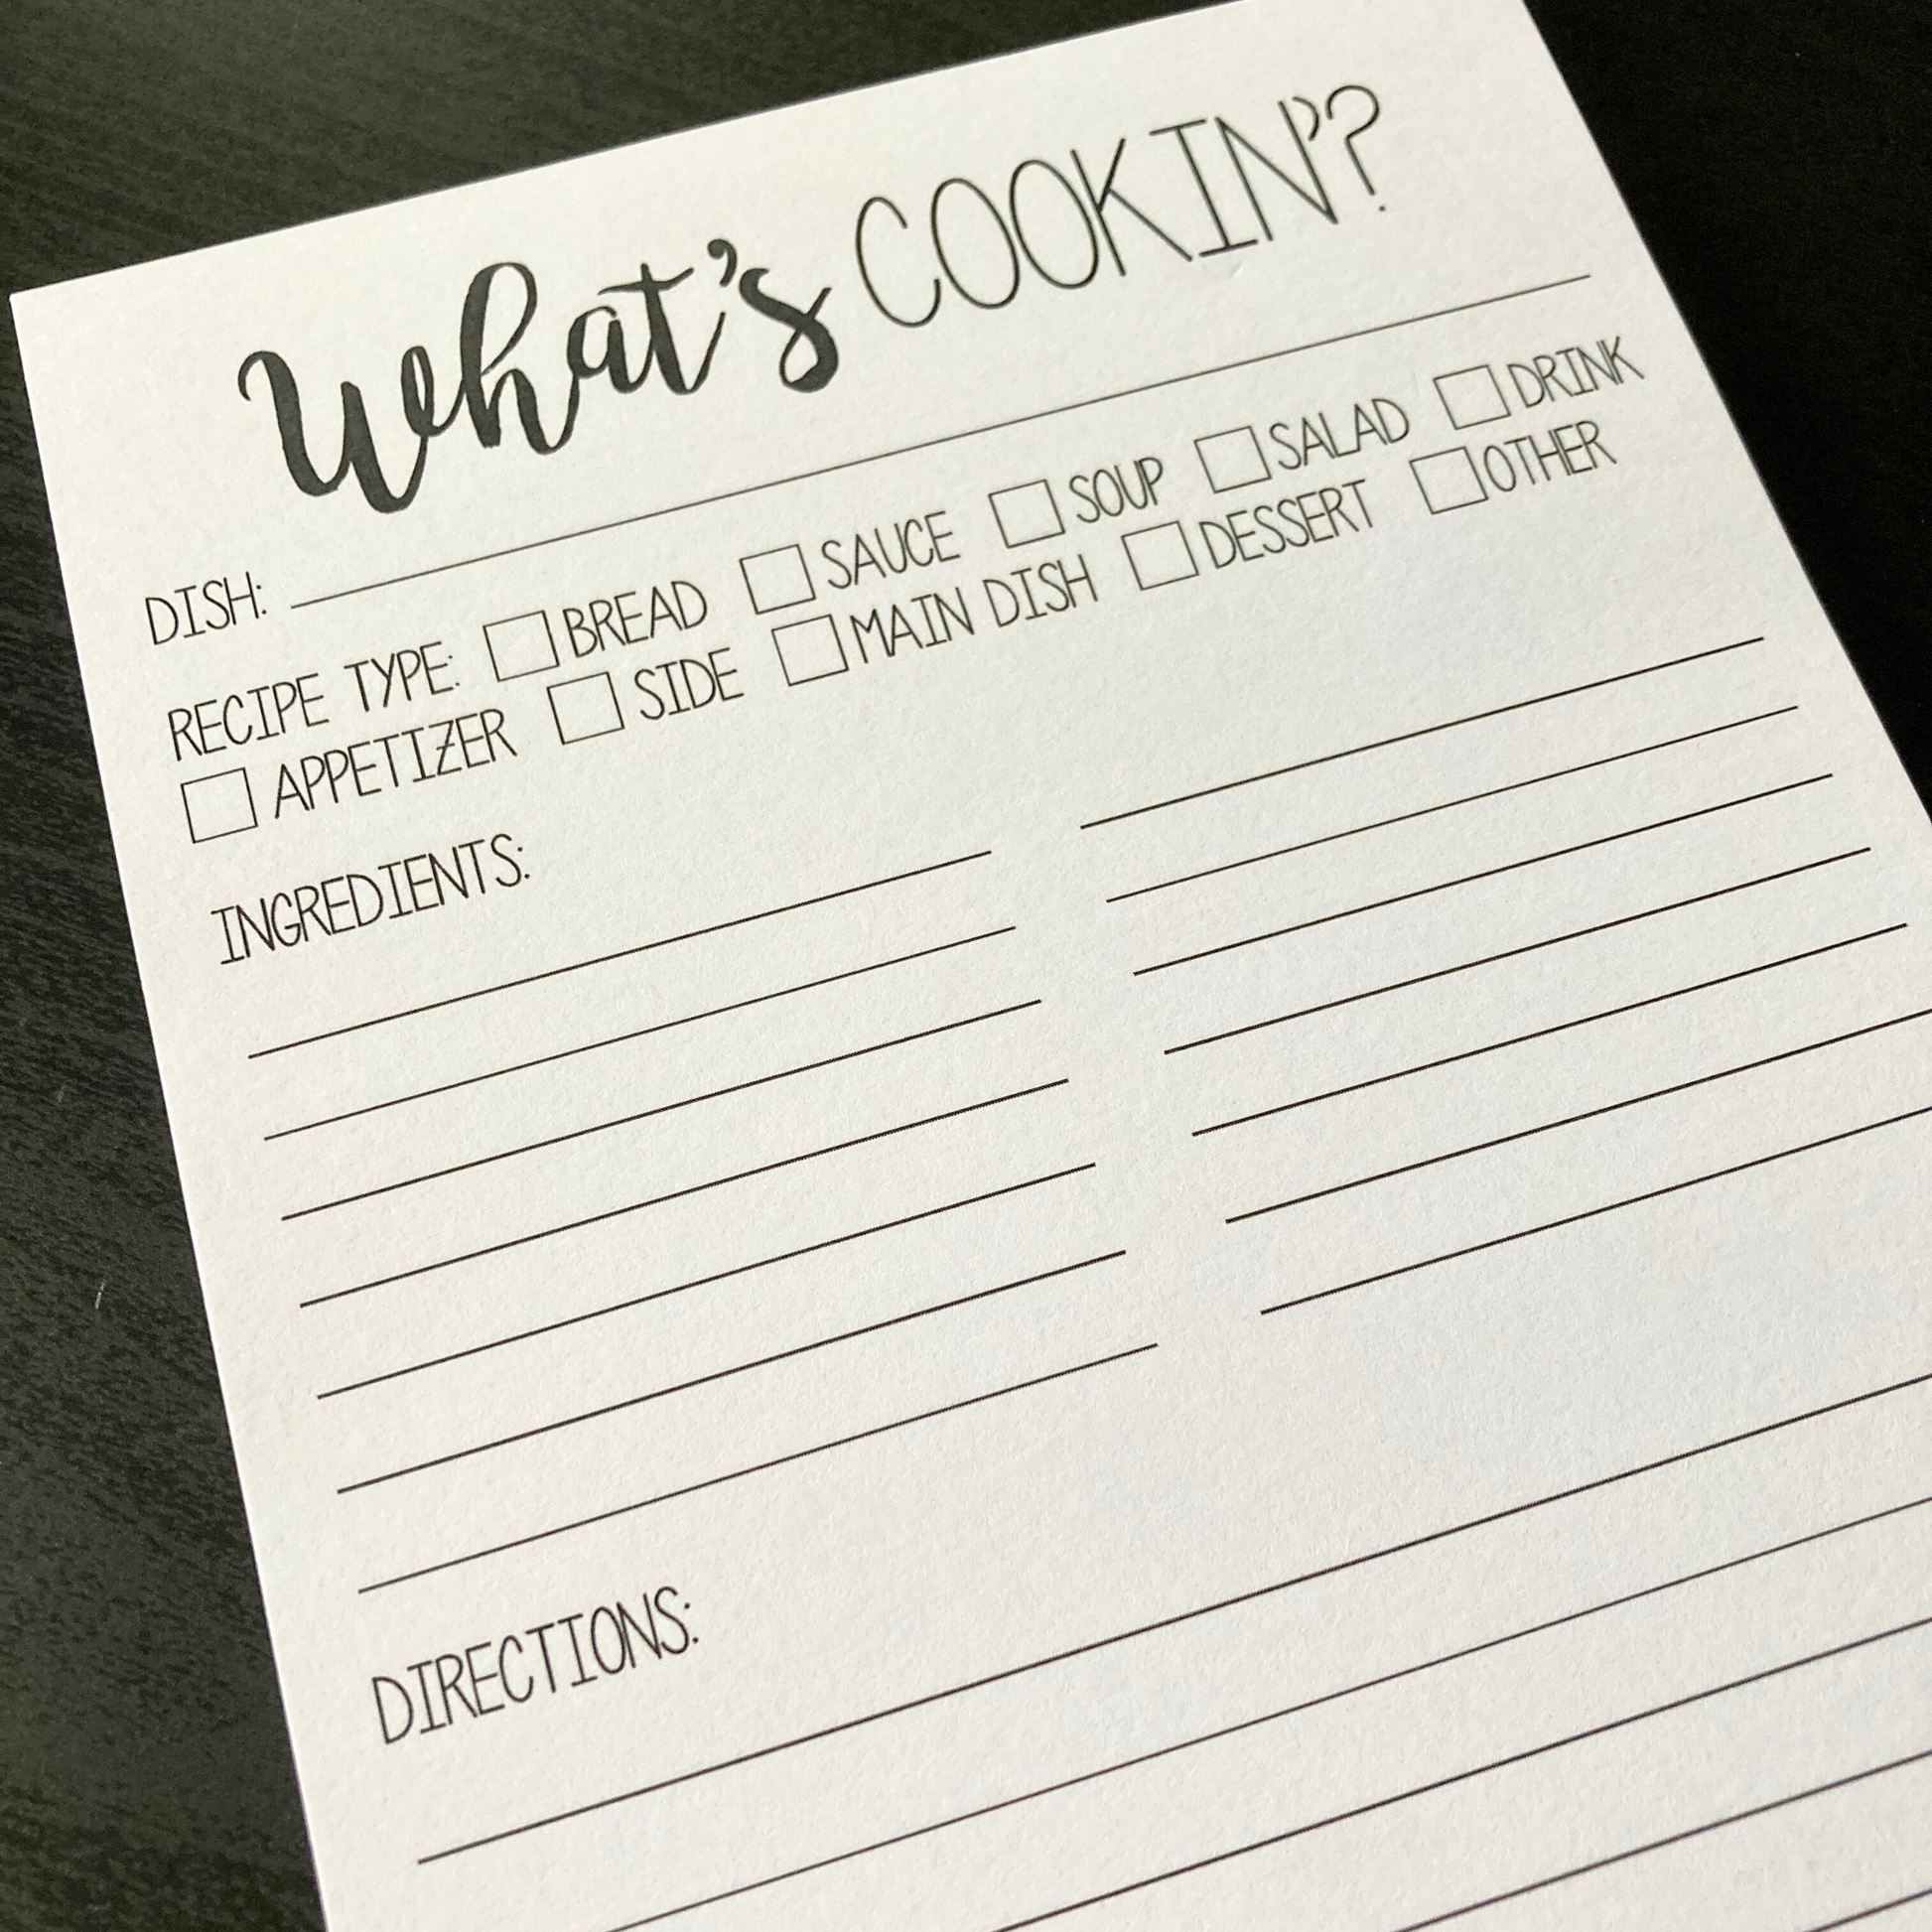 What's COOKIN'?
DISH:
RECIPE TYPE: BREAD SAUCE SOUP SALAD DRINK
APPETIZER SIDE MAIN DISH DESSERT OTHER
INGREDIENTS:
DIRECTIONS: